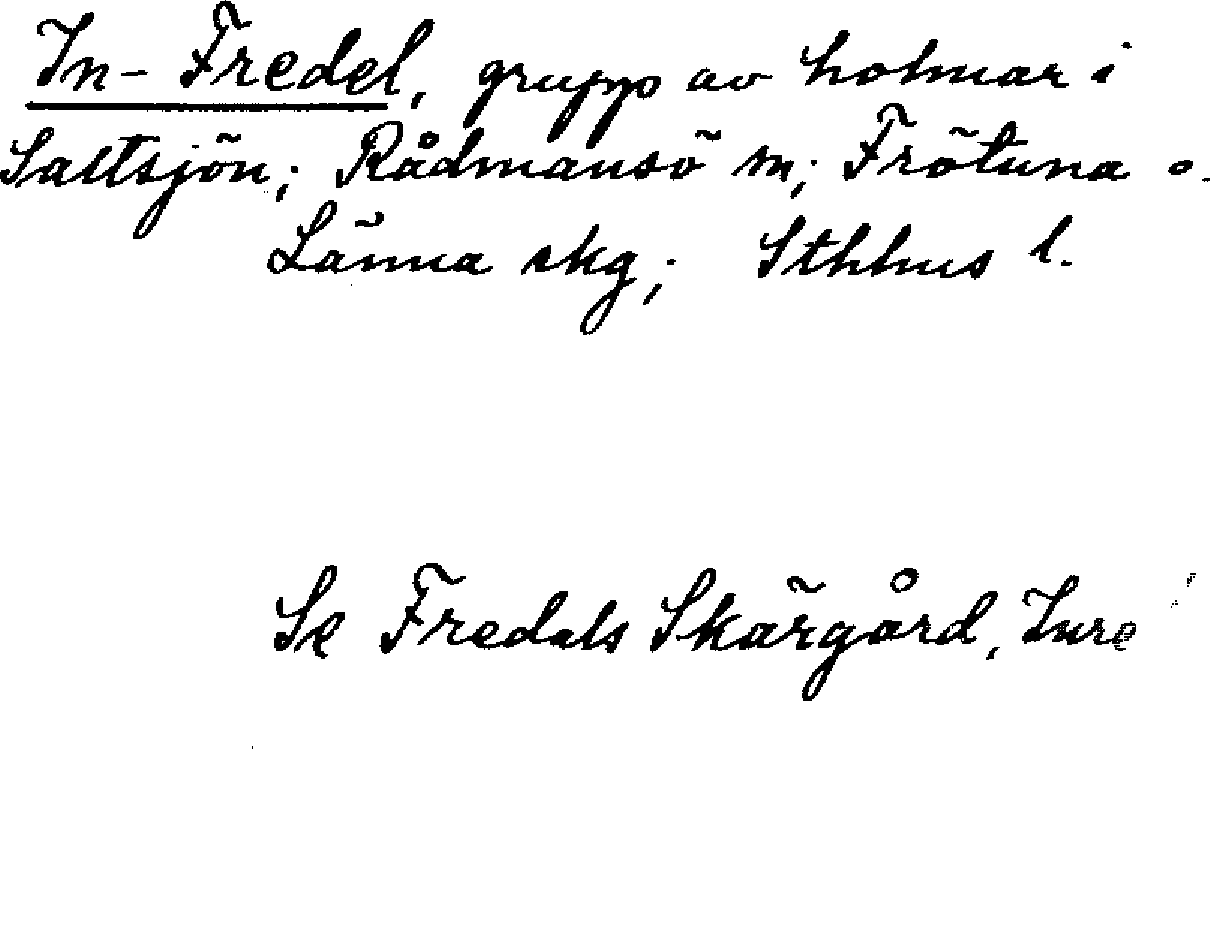 In-Fredel, grupp av holmar i
Saltsjön; Rådmansö sn; Frötuna o.
Länna skg; Sthlms l.
Se Fredels Skärgård, Inre